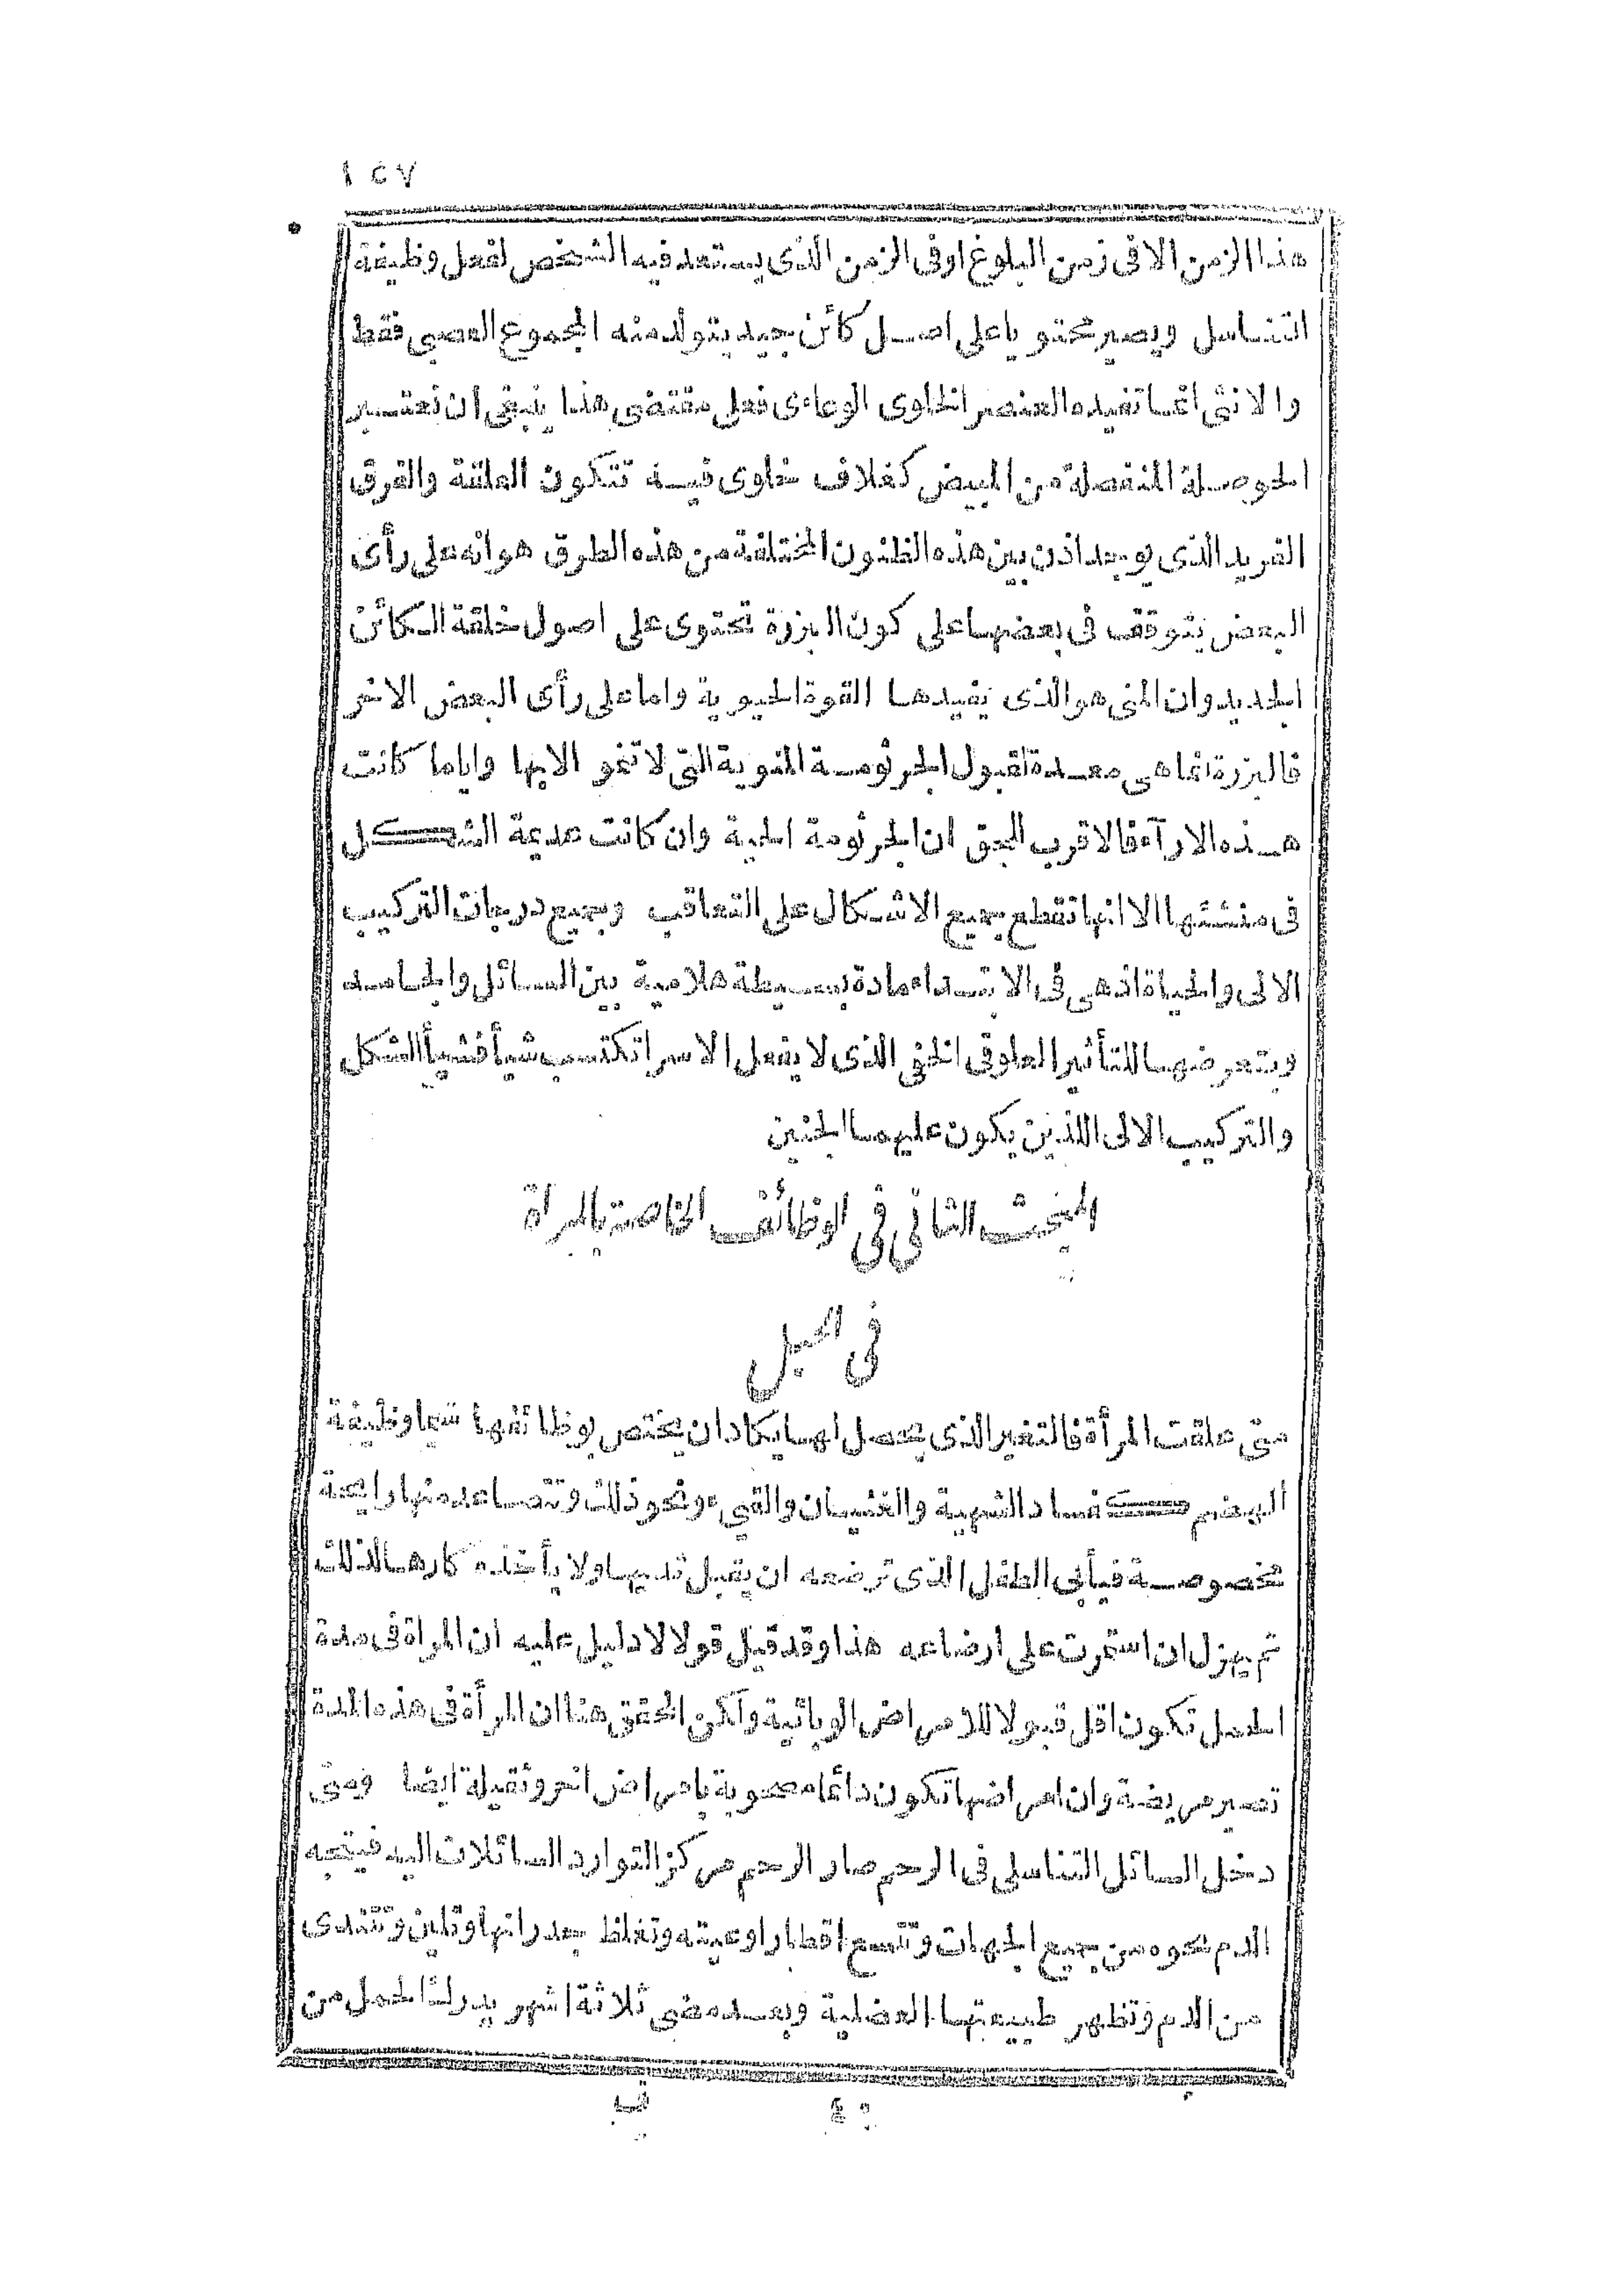 ١٥٧
هذا الزمن الا فى زمن البلوغ او فى الزمن الذى يستعد فيه الشخص لفعل وظيفة
التناسل ويصير محتويا على اصل كائن جديد يتولد منه المجموع العصبى فقط
والانثى انما تفيده العنصر الخلوى الوعاءى فعلى مقتضى هذا ينبغى ان نعتبر
الحوصلة المنفصلة من المبيض كغلاف خلوى فيه تتكون العلقة والفرق
الفريد الذى يوجد اذن بين هذه الظنون المختلفة من هذه الطرق هو انه على رأى
البعض يتوقف فى بعضها على كون البزرة تحتوى على اصول خلقة الكائن
الجديد وان المنى هو الذى يفيدها القوة الحيوية واما على رأى البعض الاخر
فالبزرة انما هى معدة لقبول الجرثومة المنوية التى لا تنمو الا بها واياما كانت
هذه الارآء فالاقرب للحق ان الجرثومة الحية وان كانت عديمة الشكل
فى منشئها الا انها تقطع جميع الاشكال على التعاقب وجميع درجات التركيب
الالى والحياة اذ هى فى الابتداء مادة بسيطة هلامية بين السائل والجامد
وبتعرضها للتأثير العلوقى الخفى الذى لا يفعل الا سرا تكتسب شيأ فشيأ الشكل
والتركيب الالى اللذين يكون عليهما الجنين
المبحث الثانى فى الوظائف الخاصة بالمراة
فى الحبل
متى علقت المرأة فالتغير الذى يحصل لها يكاد ان يختص بوظائفها سيما وظيفة
الهضم كفساد الشهية والغثيان والقىء ونحو ذلك وتتصاعد منها رايحة
مخصوصة فيأبى الطفل الذى ترضعه ان يقبل ثديها ولا يأخذه كارها لذلك
ثم يهزل ان استمرت على ارضاعه هذا وقد قيل قولا لا دليل عليه ان المراة فى مدة
الحمل تكون اقل قبولا للامراض الوبائية ولكن المحقق هنا ان المرأة فى هذه المدة
تصير مريضة وان امراضها تكون دائما مصحوبة بامراض اخر وثقيلة ايضا ومتى
دخل السائل التناسلى فى الرحم صار الرحم مركز التوارد السائلات اليه فيتجه
الدم نحوه من جميع الجهات وتتسع اقطار اوعيته وتغلظ جدرانها وتلين وتتندى
من الدم وتظهر طبيعتها العضلية وبعد مضى ثلاثة اشهر يدرك الحمل من